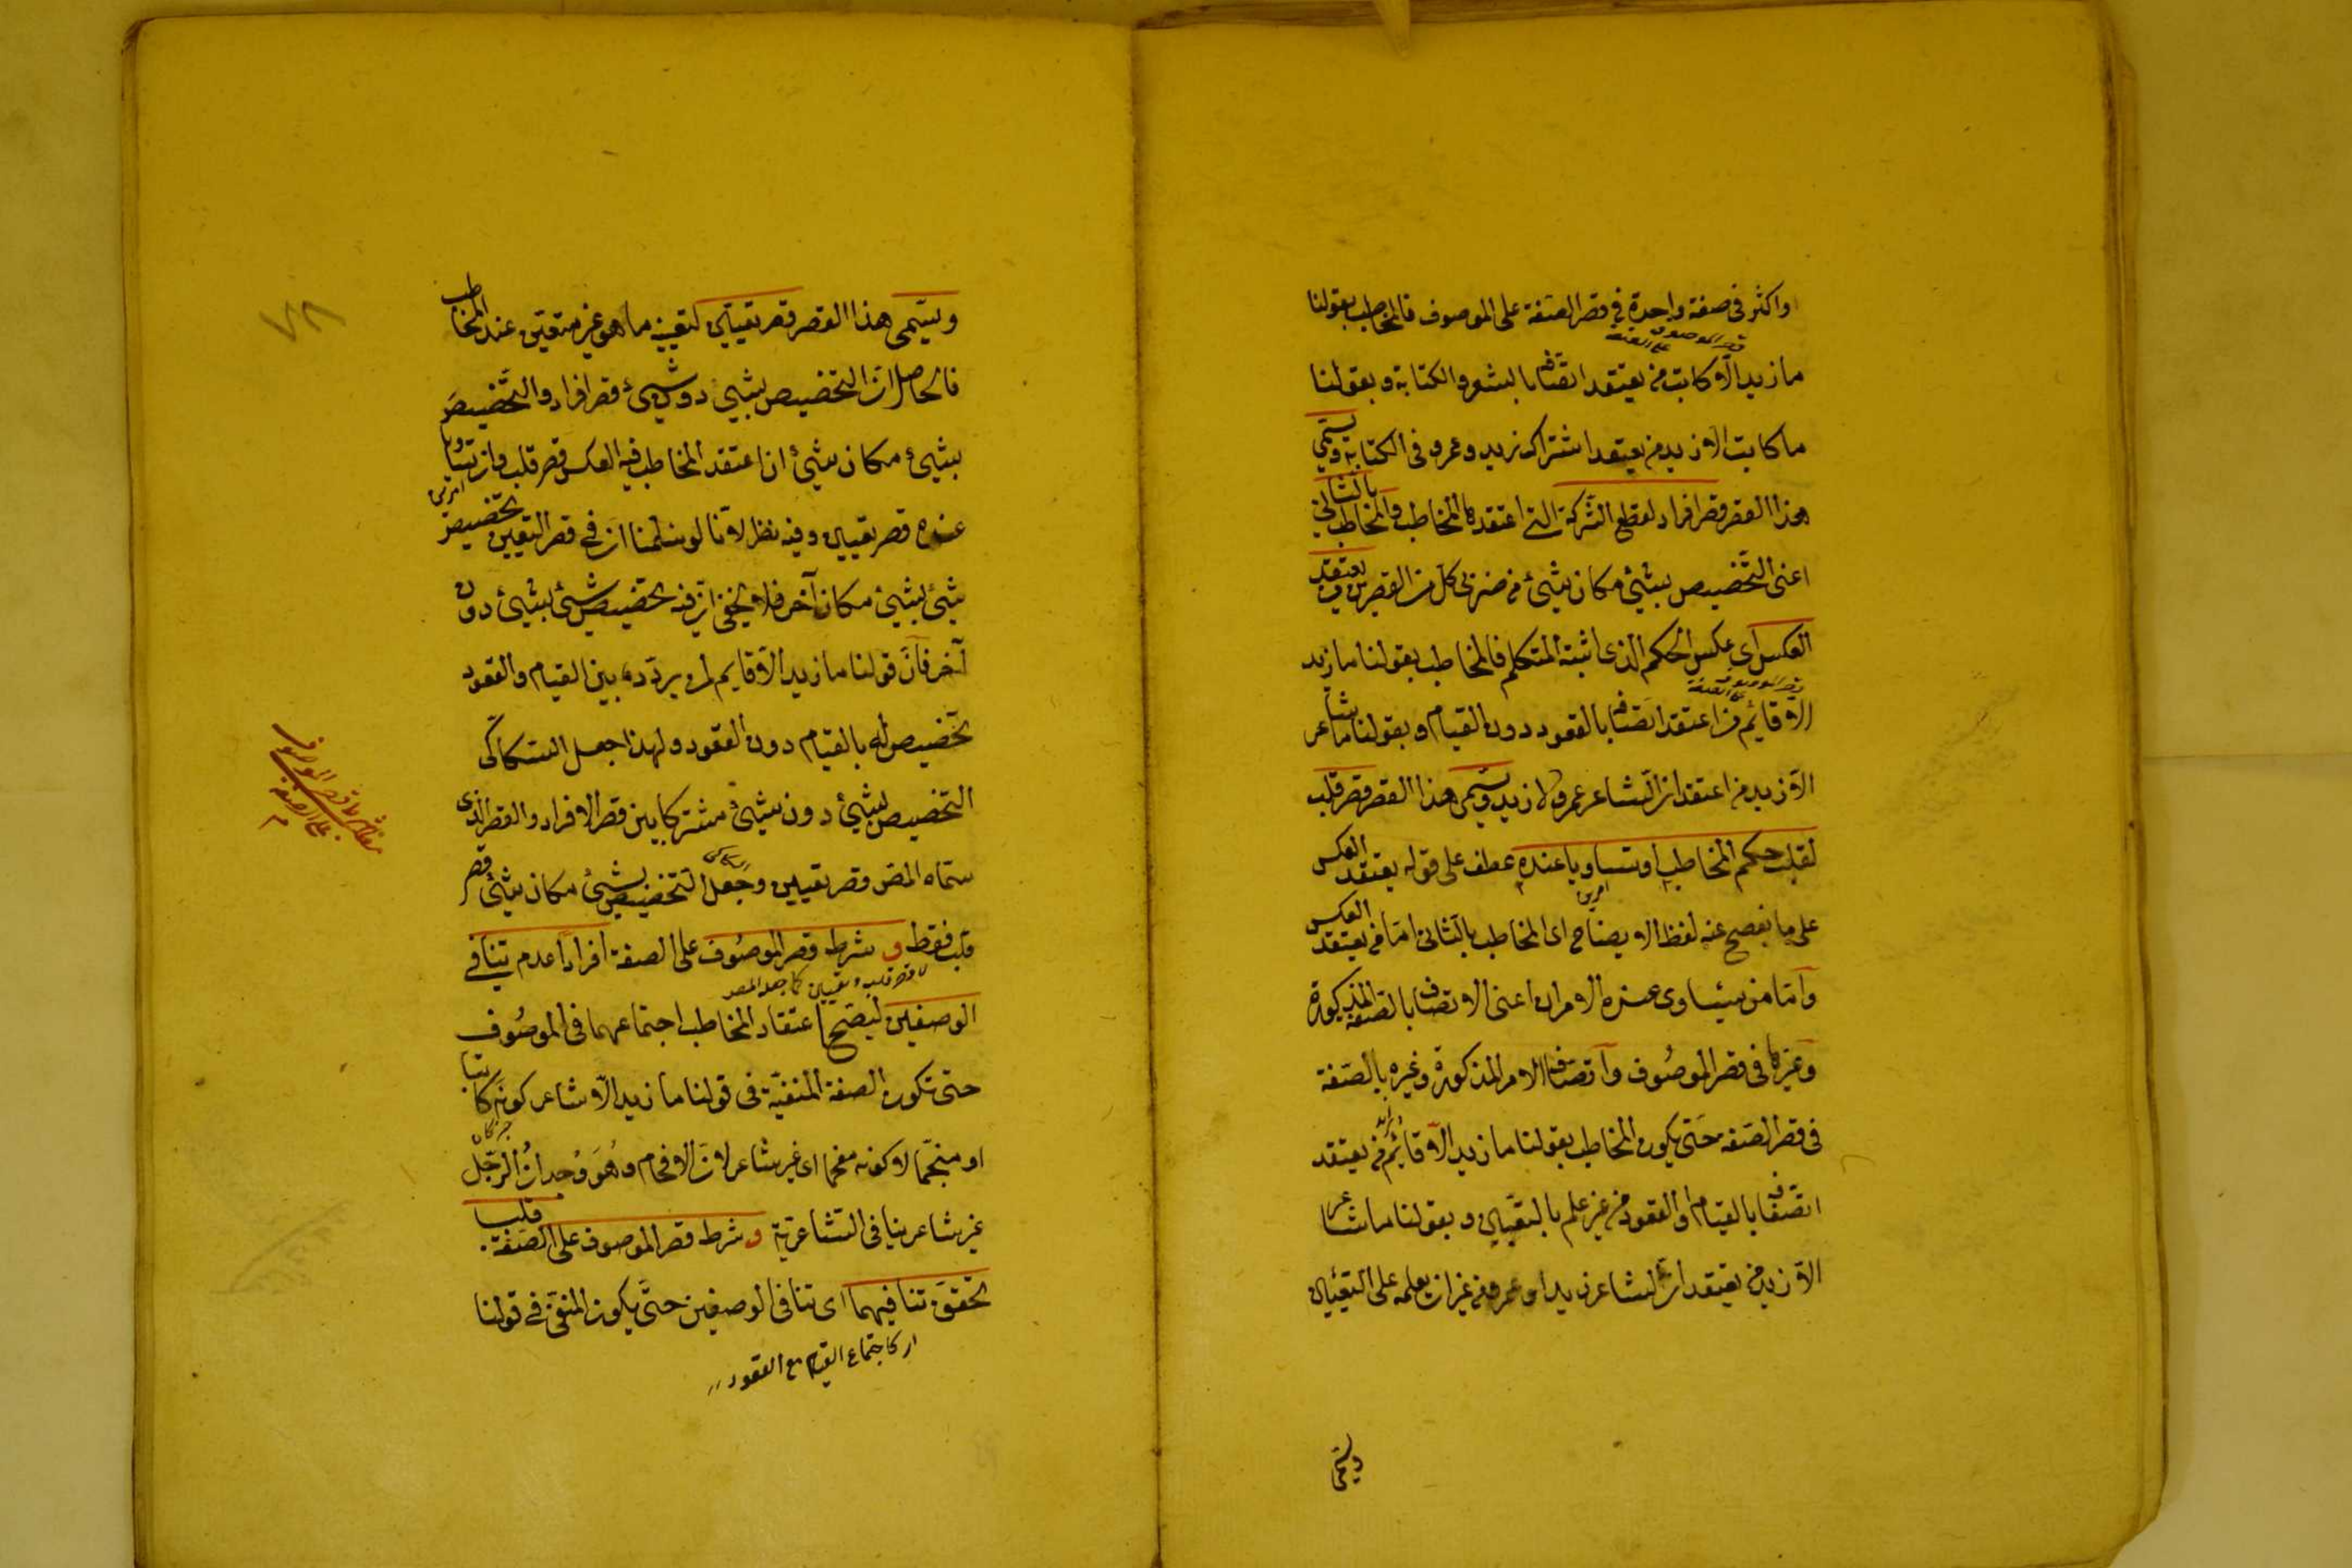 او اكثر فى صفة واحدة فى قصر الصفة على الموصوف فالمخاطب بقولنا
قصر الموصوف على الصفة
ما زيد الا كاتب من يعتقد اتصافه بالشعر والكتابة و بقولنا
ما كاتب الا زيد من يعتقد اشتراك زيد و عمرو فى الكتابة و يسمى
هذا القصر قصر افراد لقطع الشركة التى اعتقدها المخاطب و المخاطب بالثانى
اعنى التخصيص بشئ مكان شئ من ضربى كل من القصرين من يعتقد
العكس اى عكس الحكم الذى اثبته المتكلم فالمخاطب بقولنا ما زيد
قصر الموصوف على الصفة
الا قائم من اعتقد اتصافه بالقعود دون القيام و بقولنا ما شاعر
الا زيد من اعتقد ان الشاعر عمرو لا زيد و يسمى هذا القصر قصر قلب
لقلب حكم المخاطب او تساويا عنده عطف على قوله يعتقد العكس
على ما يفصح عنه لفظ الايضاح اى المخاطب بالثانى اما من يعتقد العكس
و اما من يتساوى عنده الامران اعنى الاتصاف بالصفة المذكورة
و غيرها فى قصر الموصوف و اتصاف الامر المذكورة و غيره بالصفة
فى قصر الصفة حتى يكون المخاطب بقولنا ما زيد الا قائم من يعتقد
اتصافه بالقيام او القعود من غير علم بالتعيين و بقولنا ما شاعر
الا زيد من يعتقد ان الشاعر زيد او عمرو من غير ان يعلمه على التعيين
ويسمى
٧٨
و يسمى هذا القصر قصر تعيين لتعيينه ما هو غير متعين عند المخاطب
فالحاصل ان التخصيص بشئ دون شئ قصر افراد و التخصيص
بشئ مكان شئ ان اعتقد المخاطب فيه العكس قصر قلب و ان تساويا
عنده قصر تعيين و فيه نظر لانا لو سلمنا ان فى قصر التعيين تخصيص
شئ بشئ مكان آخر فلا يخفى ان فيه تخصيص شئ بشئ دون
آخر فان قولنا ما زيد الا قايم لمن يردده بين القيام و القعود
تخصيص له بالقيام دون القعود و لهذا جعل السكاكى
التخصيص بشئ دون شئ مشتركا بين قصر الافراد و القصر الذى
سماه المص قصر تعيين و جعل التخصيص بشئ مكان شئ قصر
قلب فقط و شرط قصر الموصوف على الصفة افرادا عدم تنافى
الوصفين ليصح اعتقاد المخاطب اجتماعهما فى الموصوف
حتى تكون الصفة المنفية فى قولنا ما زيد الا شاعر كونه كاتبا
او منجما لا كونه مفحما اى غير شاعر لان الافحام و هو وجدان الرجل
غير شاعر ينافى الشاعرية و شرط قصر الموصوف على الصفة قلبا
تحقق تنافيهما اى تنافى الوصفين حتى يكون المنفى فى قولنا
كاجتماع القيام مع القعود